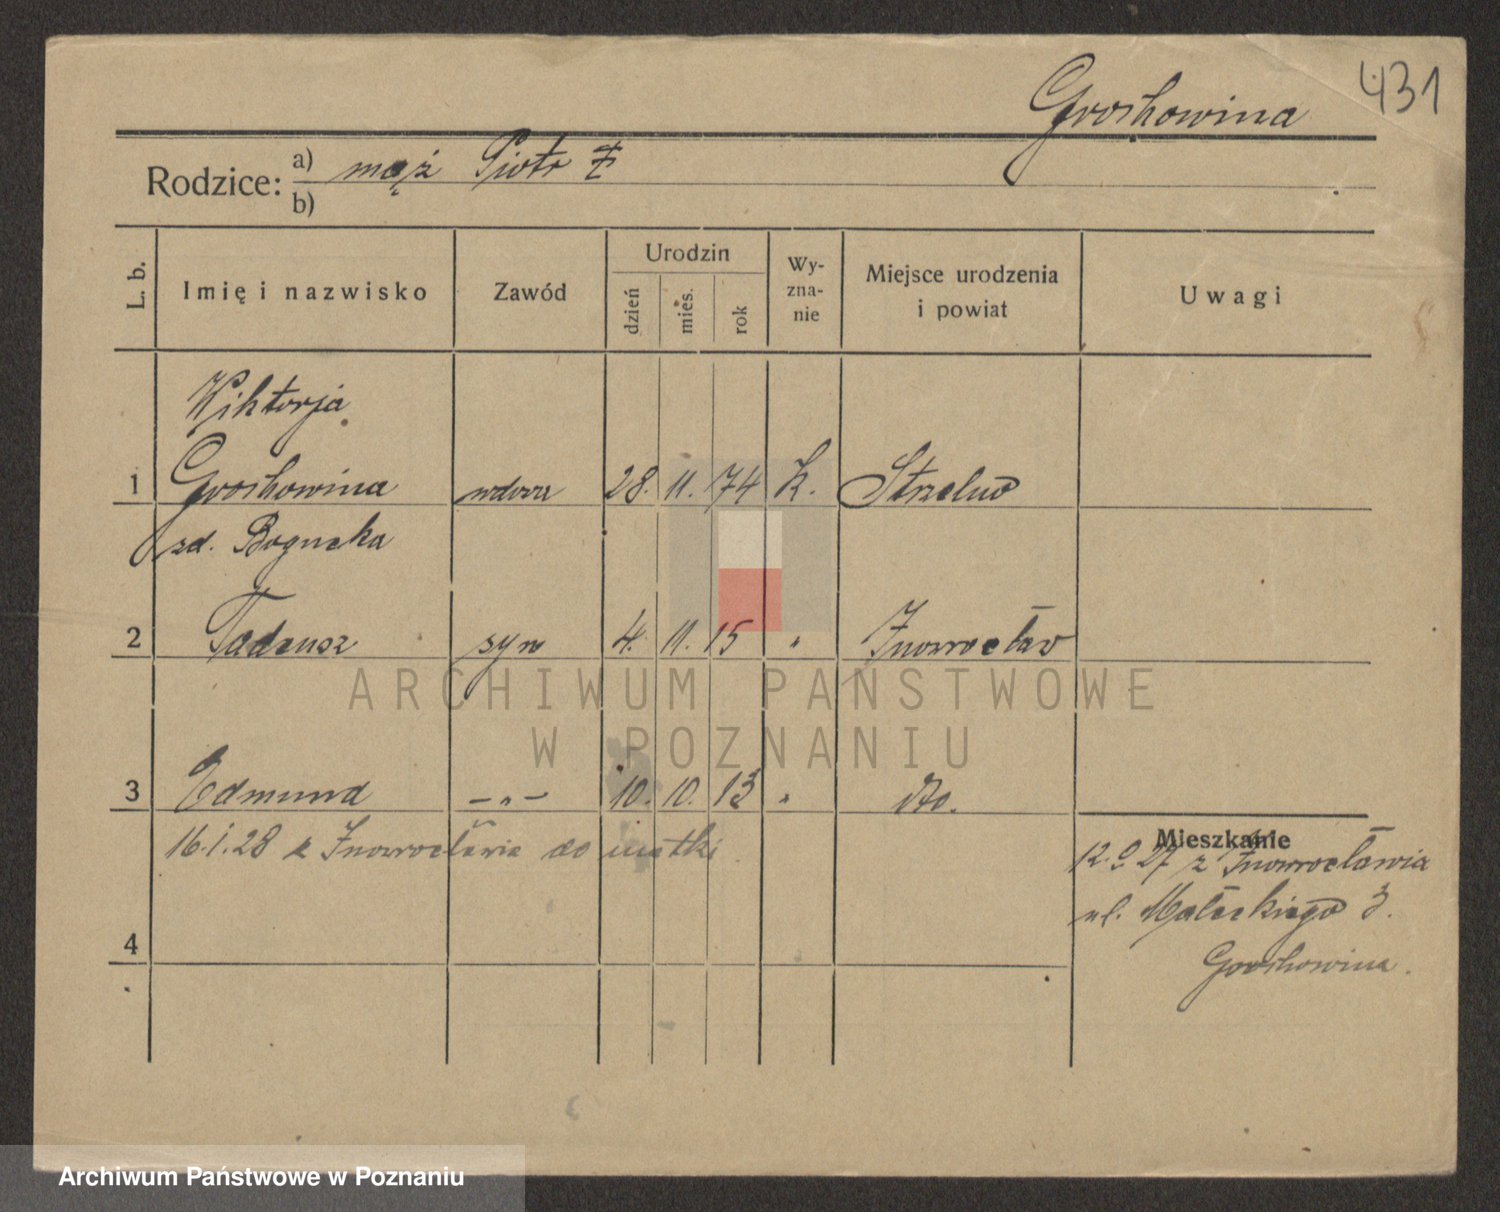 431
Groskowina
Rodzice: a) mąż Piotr ‡
b)
L. b. Imię i nazwisko Zawód Urodzin dzień mies. rok Wy-zna-nie Miejsce urodzenia i powiat Uwagi
Wiktorja
1 Groskowina wdowa 28. 11. 74 K. Strzelno
zd. Bogucka
2 Tadeusz syn 4. 11. 15 " Inowrocław
ARCHIWUM PAŃSTWOWE
W POZNANIU
3 Edmund —"— 10. 10. 13 " dto.
16.1.28 z Inowrocławia do matki.
Mieszkanie
12.9.27 z Inowrocławia
ul. Małeckiego 3.
Groskowina.
4
Archiwum Państwowe w Poznaniu